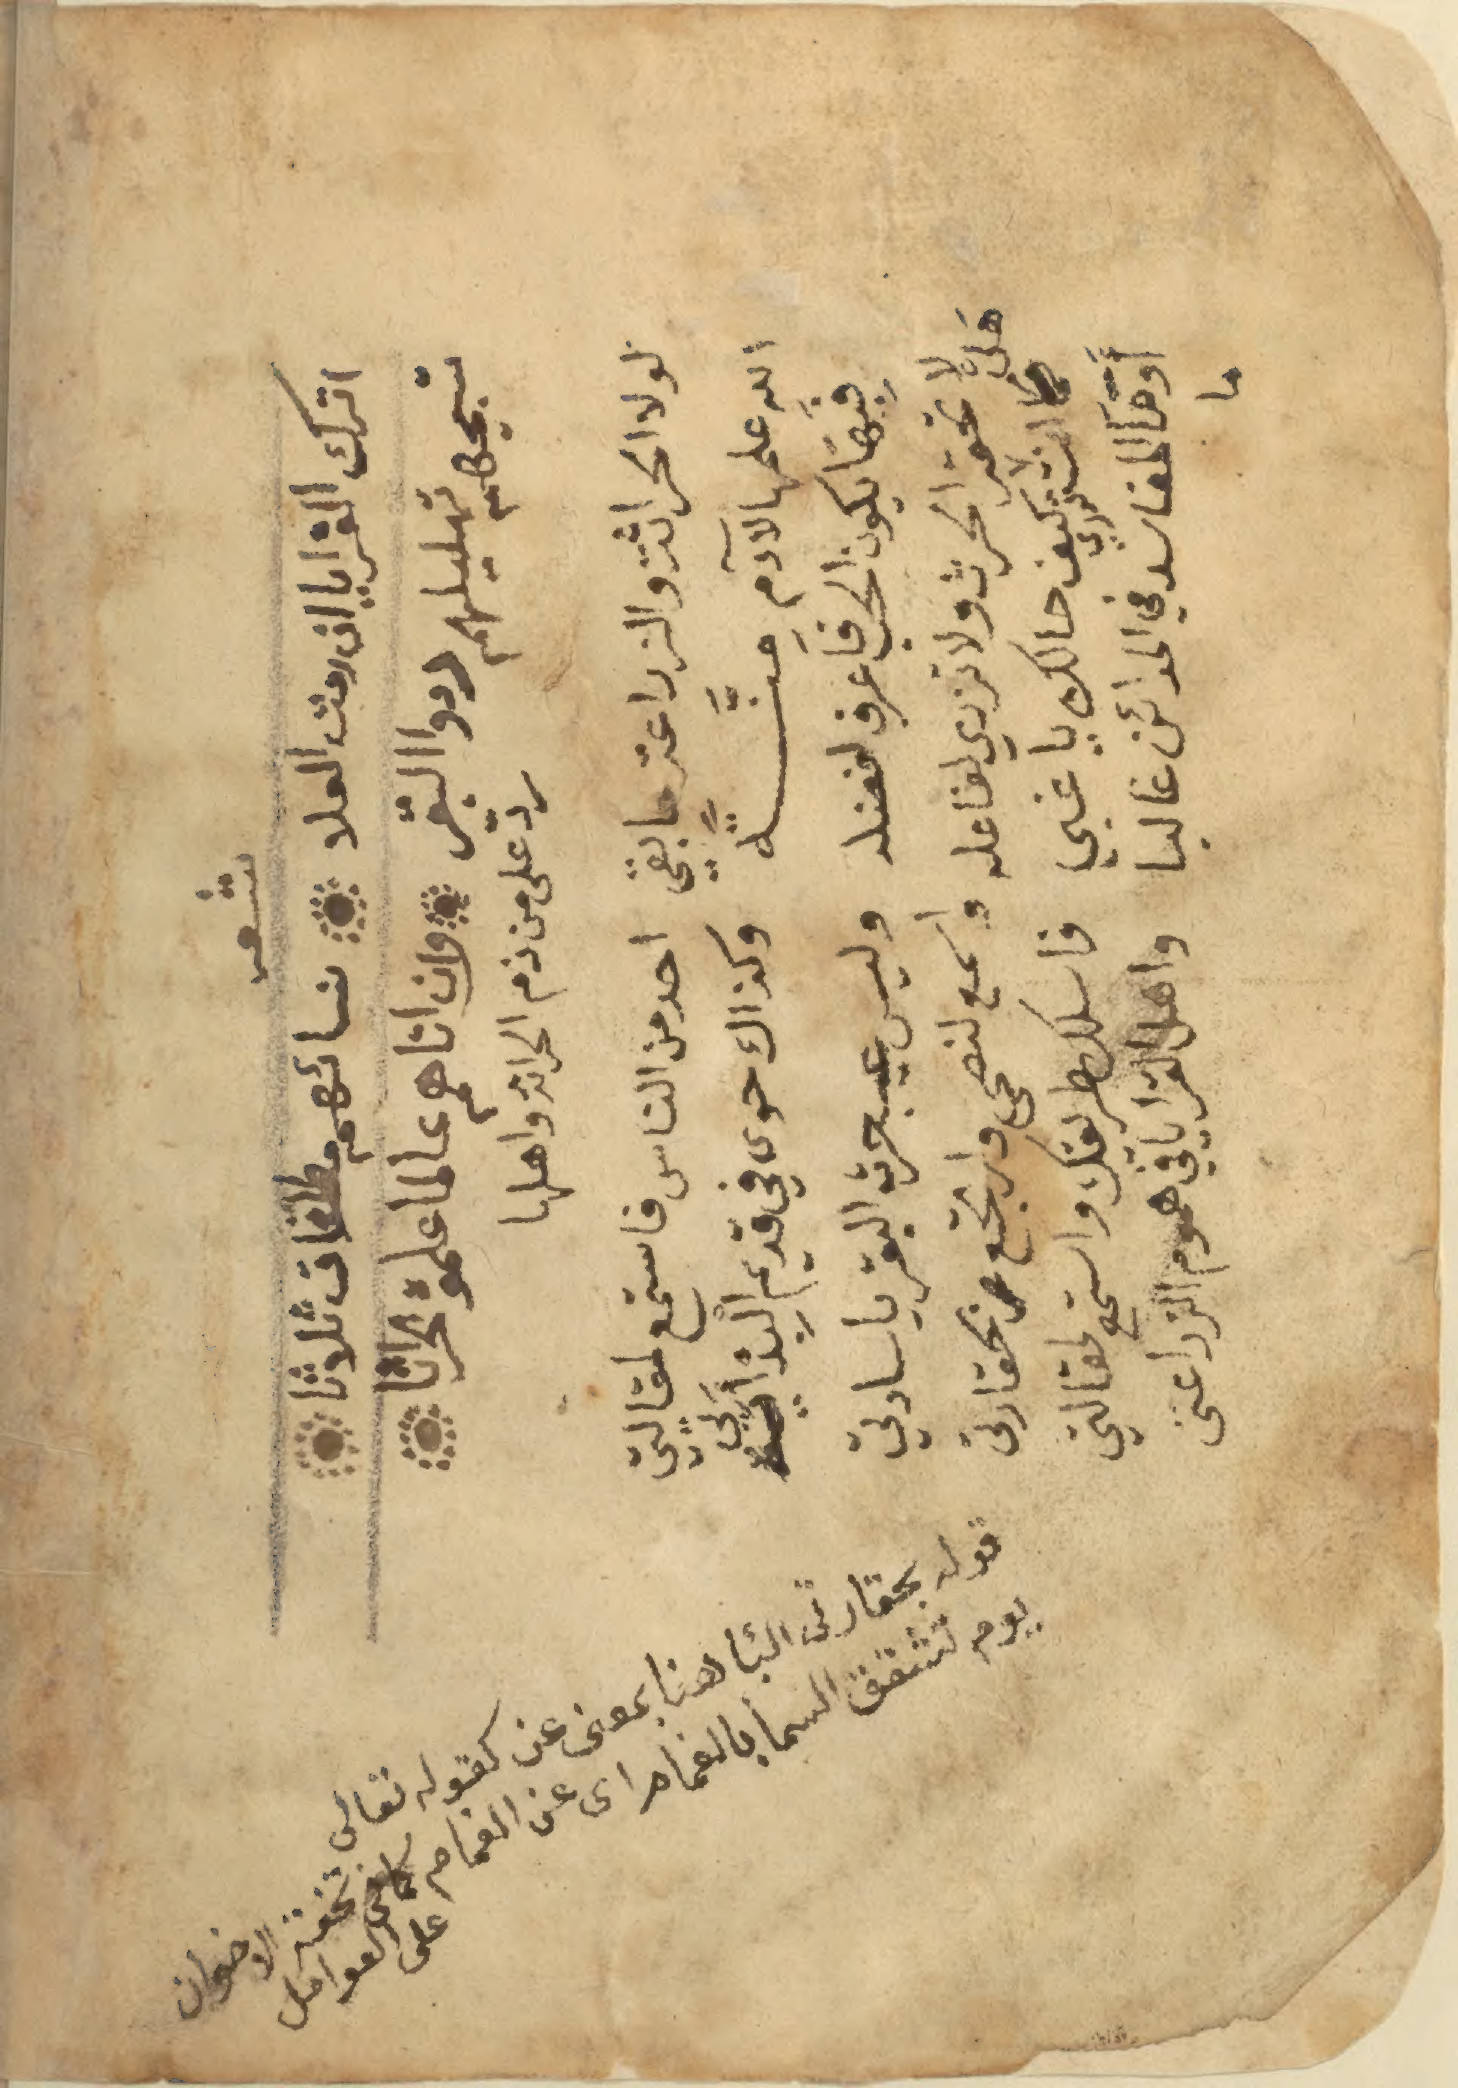 شعر
اترك القرايا ان رمت العلا نسائهم مطلقات ثلاثا
تسبيحهم تهليلهم ردوا البقر وان اتاهم عالما علموه حراثا
رد على من ذم الحراثة واهلها
لولا الحراثة والزراعة ما بقي احد من الناس فاستمع لمقالتي
الله علمها لآدم منة وكذاك حوى في قديم
فيها يكون الحب فاعرف لفضله وليس عيب حرث البقر يا سادتي
هلا لا تحقر الحرث ولا تزدري لفاعله واسمع لنصحي وارتجع بحقارتي
كيف حالك يا غبي فاسلك طريقك واستمع لمقالتي
أو ما ترى المفاسد في المدائن غالبا واهل القرايا في هموم الزراعتي
ما
قوله بحقارتي البا هنا بمعنى عن كقوله تعالى
يوم تشقق السما بالغمام اى عن الغمام
على
تحفة الاخوان
العوامل